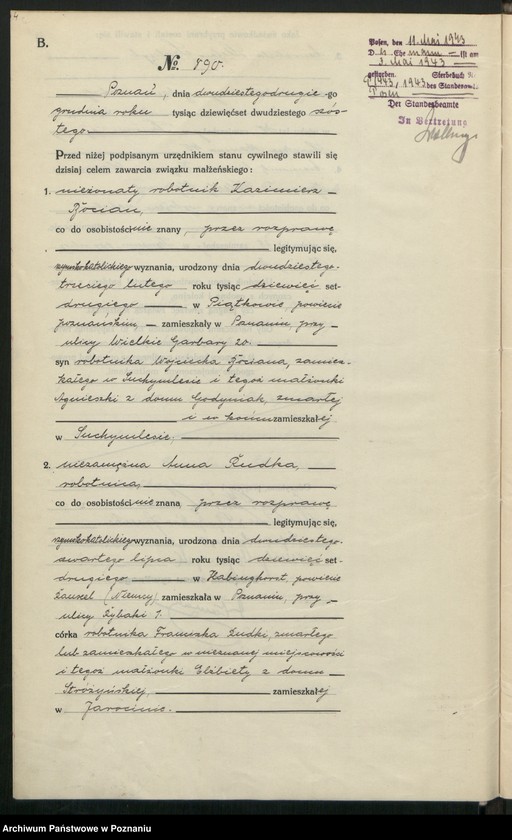 B.
№ 890.
Poznań, dnia dwudziestegodrugie-go
grudnia roku tysiąc dziewięćset dwudziestego szós-
tego.
Przed niżej podpisanym urzędnikiem stanu cywilnego stawili się
dzisiaj celem zawarcia związku małżeńskiego:
1. nieżonaty robotnik Kazimierz
Kocian,
co do osobistości nie znany, przez rozprawę
legitymując się,
rzymskokatolickiego wyznania, urodzony dnia dwudziestego-
trzeciego lutego roku tysiąc dziewięć set-
drugiego w Piątkowie, powiecie
poznańskim, zamieszkały w Poznaniu przy
ulicy Wielkie Garbary 20.
syn robotnika Wojciecha Kociana, zamiesz-
kałego w Suchymlesie i tegoż małżonki
Agnieszki z domu Godyniak, zmarłej
i w końcu zamieszkałej
w Suchymlesie.
2. niezamężna Anna Rudka,
robotnica,
co do osobistości nie znana przez rozprawę
legitymując się,
rzymskokatolickiego wyznania, urodzona dnia dwudziestego-
czwartego lipca roku tysiąc dziewięć set-
drugiego w Habinghorst, powiecie
(Niemcy), zamieszkała w Poznaniu, przy
ulicy Rybaki 1.
córka robotnika Franciszka Rudki, zmarłego
lub zamieszkałego w nieznanej miejscowości
i tegoż małżonki Elżbiety z domu
Stróżyńskiej, zamieszkałej
w Jarocinie.
Posen, den 11. Mai 1943
D. Ehe mann ist am
3. Mai 1943
gestorben. Sterbebuch Nr.
1943 des Standesamts
Posen
Der Standesbeamte
In Vertretung
Archiwum Państwowe w Poznaniu